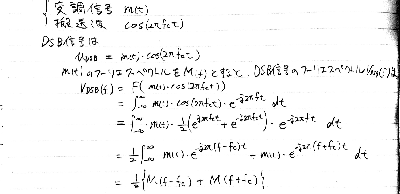 変調信号 m(t)
搬送波 cos(2πfct)
DSB信号は
VDSB = m(t)・cos(2πfct)
m(t)のフーリエスペクトルをM(f)とすると、DSB信号のフーリエスペクトルVDSB(f)は
VDSB(f) = F{ m(t)・cos(2πfct) }
= ∫_{-∞}^{∞} m(t)・cos(2πfct)・e^{-j2πft} dt
= ∫_{-∞}^{∞} m(t)・1/2 (e^{j2πfct} + e^{-j2πfct})・e^{-j2πft} dt
= 1/2 ∫_{-∞}^{∞} m(t)・e^{-j2π(f-fc)t} + m(t)・e^{-j2π(f+fc)t} dt
= 1/2 { M(f-fc) + M(f+fc) }